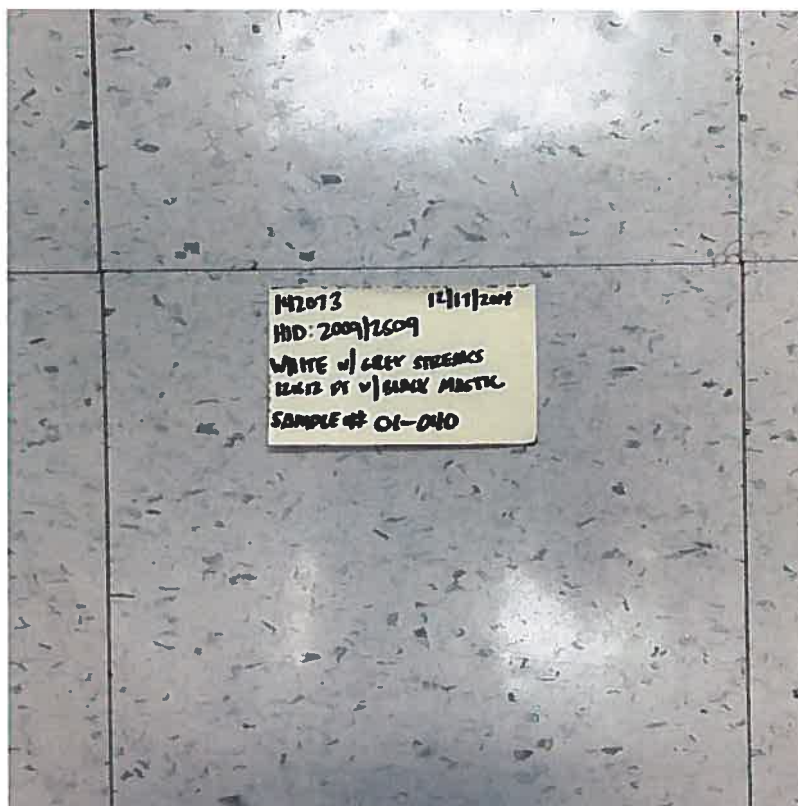 142073
HID: 2009/2609
WHITE w/ GREY STREAKS
12x12 FT w/ BLACK MASTIC
SAMPLE # 01-040